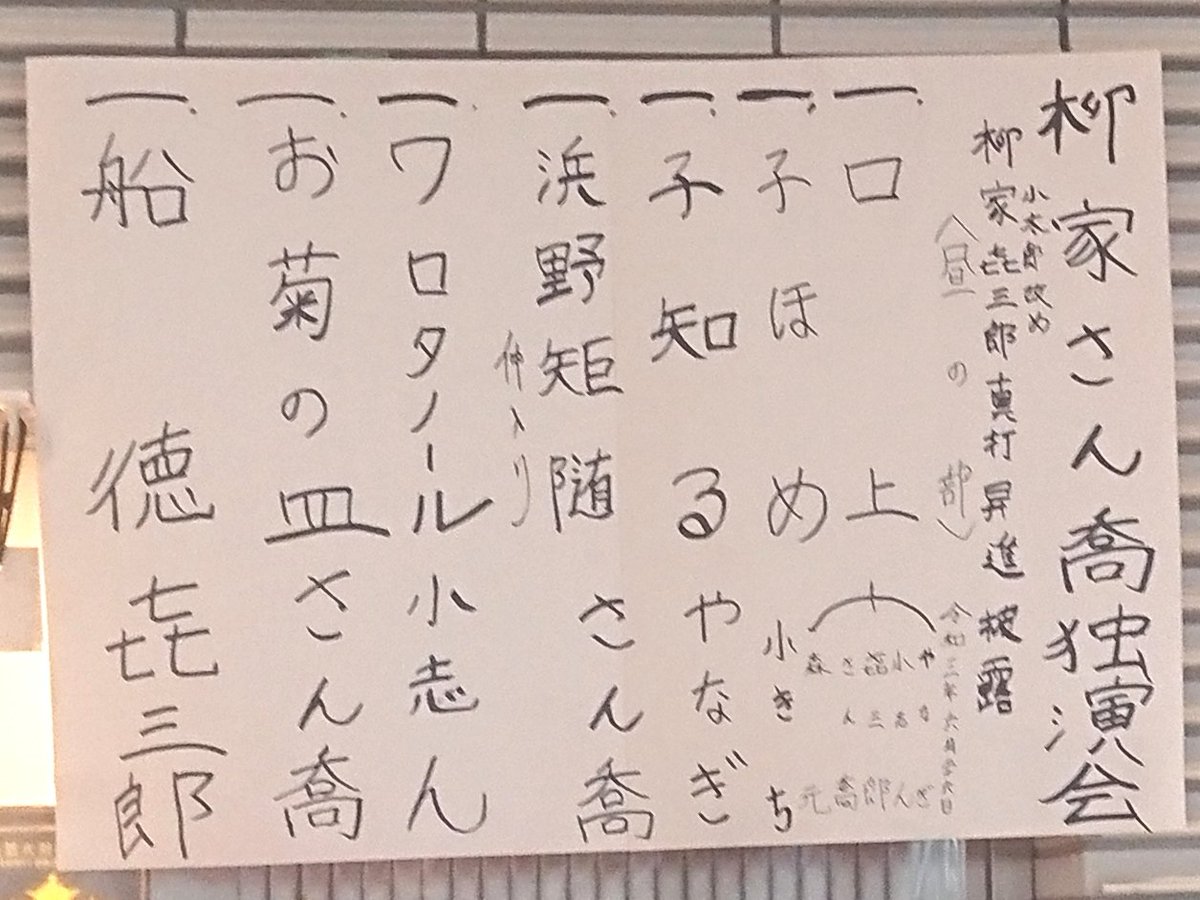 柳家さん喬独演会
小太郎改め
柳家㐂三郎真打昇進披露
（昼の部）
令和三年六月廿六日
一、口上
やなぎ
小志ん
㐂三郎
さん喬
森元
一、子ほめ 小きち
一、子知る やなぎ
一、浜野矩随 さん喬
仲入り
一、ワロタノール 小志ん
一、お菊の皿 さん喬
一、船徳 㐂三郎